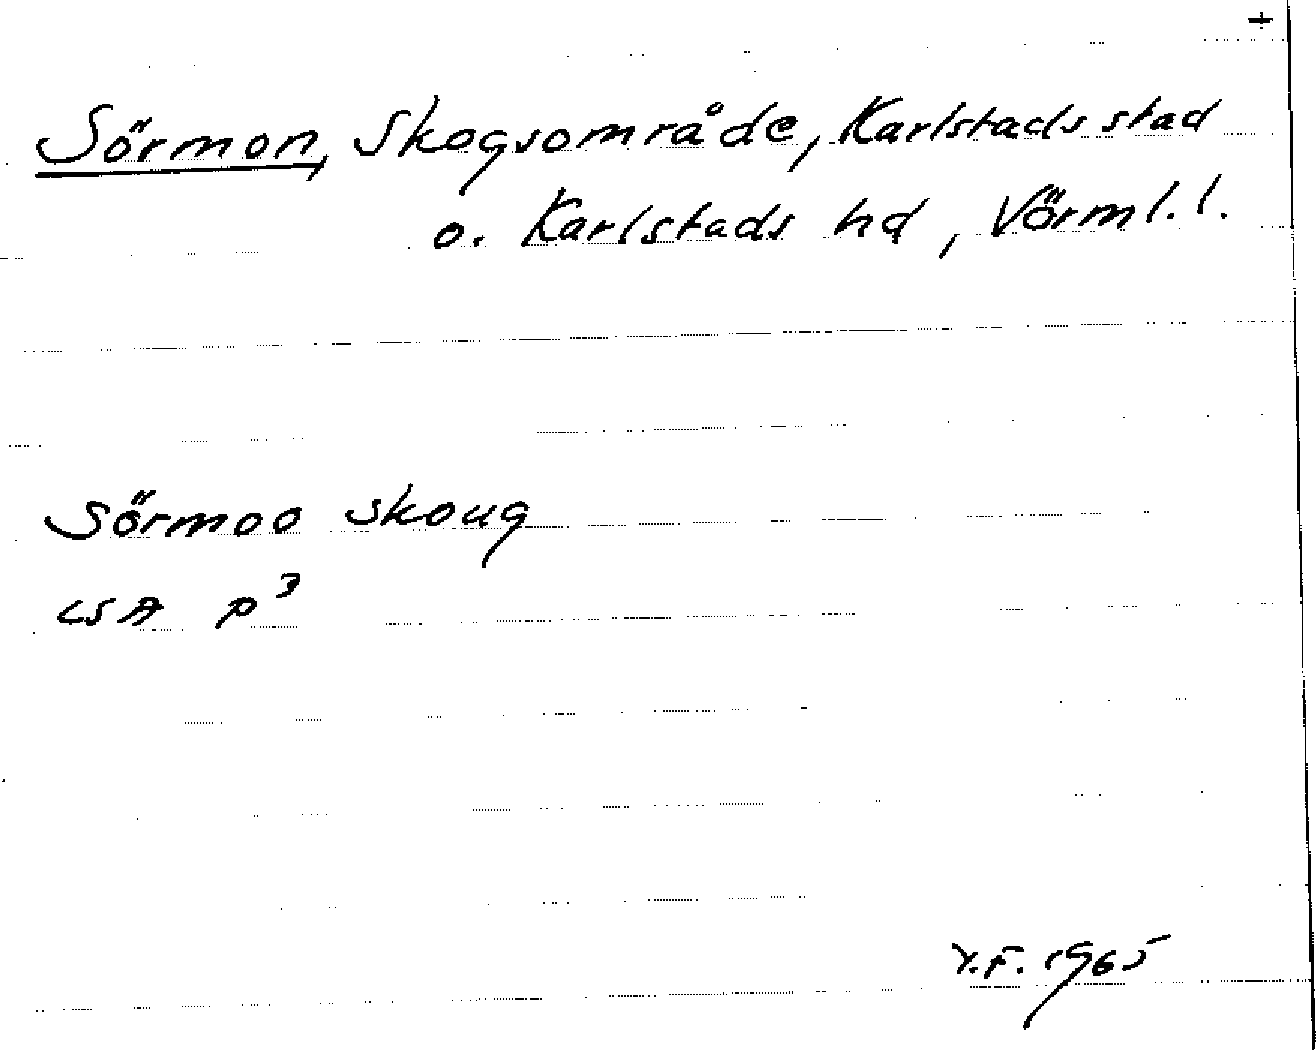 +
Sörmon, Skogsområde, Karlstads stad
o. Karlstads hd, Värml. l.
Sörmoo skoug
LSA P³
Y.F. 1965